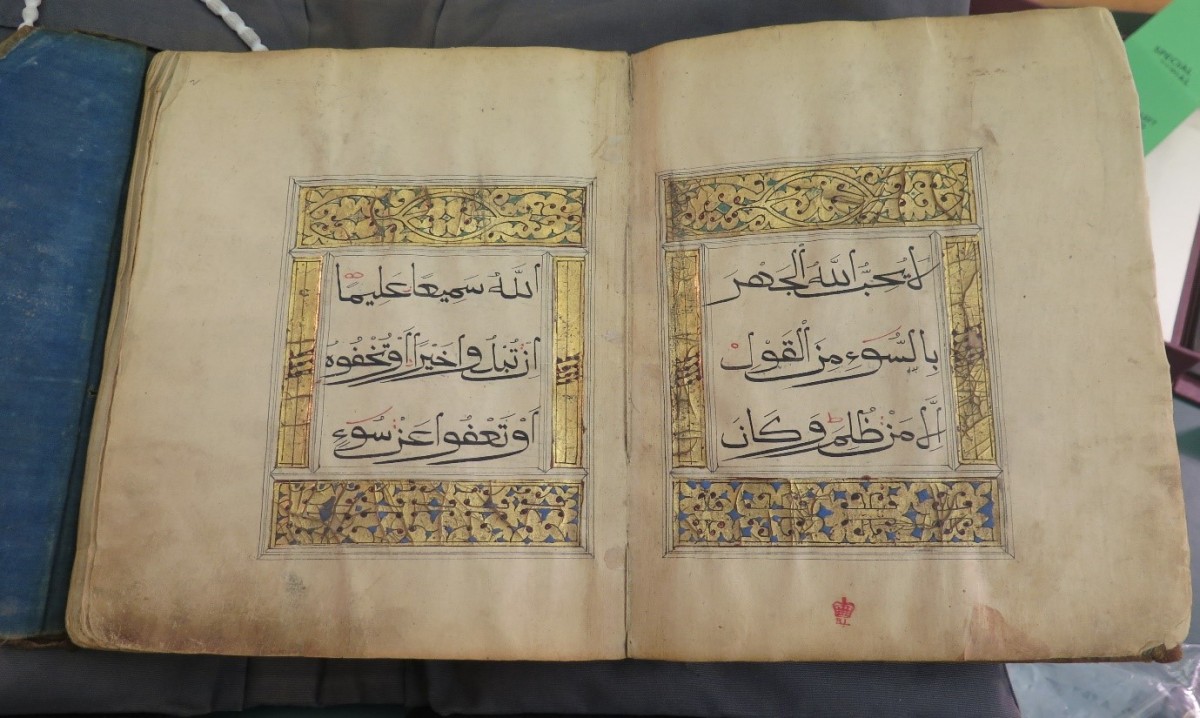 لَا يُحِبُّ اللَّهُ الْجَهْرَ
بِالسُّوءِ مِنَ الْقَوْلِ
إِلَّا مَنْ ظُلِمَ وَكَانَ
اللَّهُ سَمِيعًا عَلِيمًا
اِنْ تُبْدُوا خَيْرًا أَوْ تُخْفُوهُ
أَوْ تَعْفُوا عَنْ سُوءٍ
SPECIAL